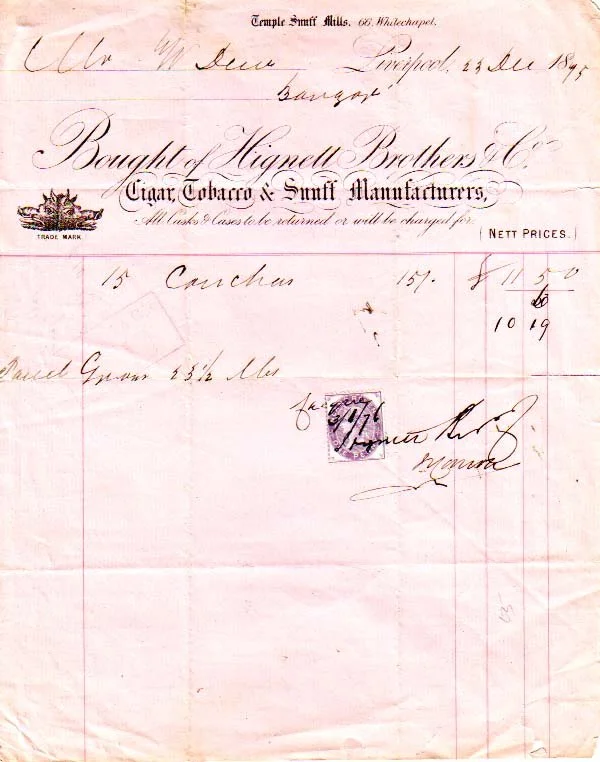 Temple Snuff Mills. 66, Whitechapel.
Mr W Dew Liverpool, 23 Dec 1875
Bangor
Bought of Hignett Brothers & Co.
Cigar, Tobacco & Snuff Manufacturers,
All Casks & Cases to be returned or will be charged for.
TRADE MARK
NETT PRICES.
15 Conchas 15/- £ 11 5 0
6
10 19
Parcel Gross 23 1/2 lbs
3/1/76